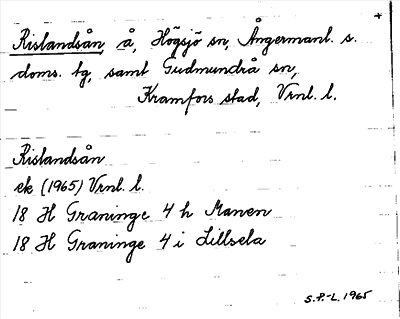 Rislandsån, å, Högsjö sn, Ångermanl. s.
doms. tg, samt Gudmundrå sn,
Kramfors stad, Vrnl. l.
Rislandsån
ek (1965) Vrnl. l.
18 H Graninge 4 h Manen
18 H Graninge 4 i Lillsela
S.P.-L. 1965